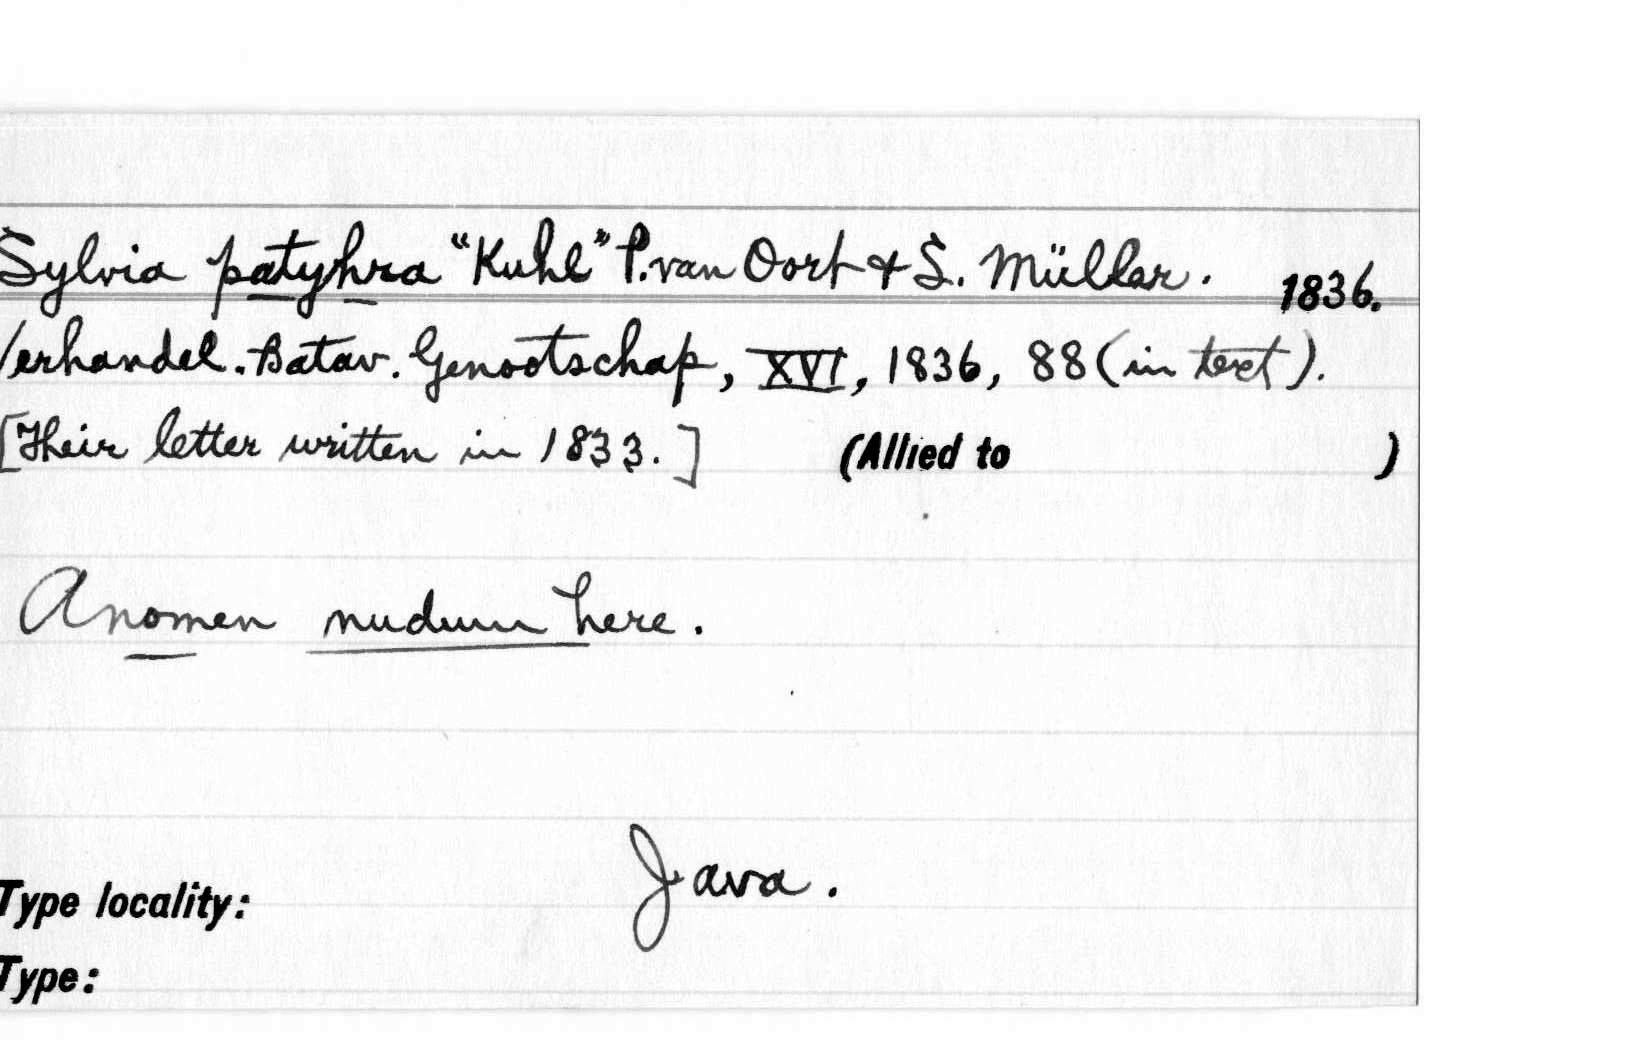 Sylvia patyhra "Kuhl" P. van Oort & S. Müller. 1836.
Verhandel. Batav. Genootschap, XVI, 1836, 88 (in text).
[Their letter written in 1833.] (Allied to )
A nomen nudum here.
Type locality: Java.
Type: